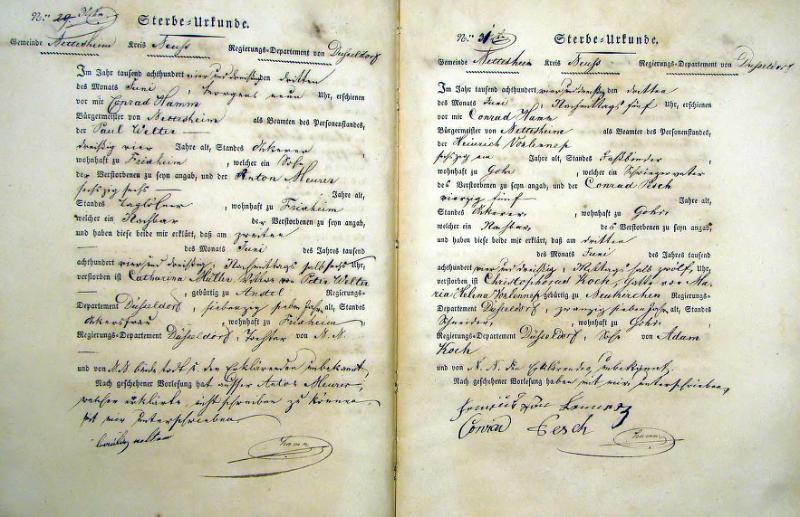 Nro. 29
Sterbe-Urkunde.
Gemeinde Nettesheim Kreis Neuss Regierungs-Departement von Düsseldorf
Im Jahr tausend achthundert vier und dreißig den dritten
des Monats Juni, Morgens neun Uhr, erschienen
vor mir Conrad Hamm
Bürgermeister von Nettesheim als Beamten des Personenstandes,
der Paul Welter
dreißig vier Jahre alt, Standes Ackerer
wohnhaft zu Frixheim, welcher ein Sohn
der Verstorbenen zu seyn angab, und der Anton Meurer
sechszig sechs Jahre alt,
Standes Taglöhner, wohnhaft zu Frixheim
welcher ein Nachbar der Verstorbenen zu seyn angab,
und haben diese beide mir erklärt, daß am zweiten
des Monats Juni des Jahres tausend
achthundert vier und dreißig, Nachmittags halb sechs Uhr,
verstorben ist Catharina Müller, Wittwe von Peter Welter
, gebürtig zu Anstel Regierungs-
Departement Düsseldorf, siebenzig sieben Jahre alt, Standes
Ackersfrau, wohnhaft zu Frixheim
Regierungs-Departement Düsseldorf, Tochter von N. N.
und von N. N. beide todt u. den Erklärenden unbekannt.
Nach geschehener Vorlesung hat ausser Anton Meurer,
welcher erklärte, nicht schreiben zu können
mit mir unterschrieben
Hamm
Nro. 31
Sterbe-Urkunde.
Gemeinde Nettesheim Kreis Neuss Regierungs-Departement von Düsseldorf
Im Jahr tausend achthundert vier und dreißig den dritten
des Monats Juni, Nachmittags fünf Uhr, erschienen
vor mir Conrad Hamm
Bürgermeister von Nettesheim als Beamten des Personenstandes,
der Heinrich
sechszig ein Jahre alt, Standes Faßbinder
wohnhaft zu Gohr, welcher ein Schwiegervater
des Verstorbenen zu seyn angab, und der Conrad Pesch
vierzig fünf Jahre alt,
Standes Ackerer, wohnhaft zu Gohr
welcher ein Nachbar, des Verstorbenen zu seyn angab,
und haben diese beide mir erklärt, daß am dritten
des Monats Juni des Jahres tausend
achthundert vier und dreißig, Mittags halb zwölf Uhr,
verstorben ist Koch, Gatte von Ma-
ria Helena gebürtig zu Neukirchen Regierungs-
Departement Düsseldorf, zwanzig sieben Jahre alt, Standes
Schneider, wohnhaft zu Gohr,
Regierungs-Departement Düsseldorf, Sohn von Adam
Koch
und von N. N. den Erklärenden unbekannt.
Nach geschehener Vorlesung haben mit mir unterschrieben,
Conrad Pesch
Hamm